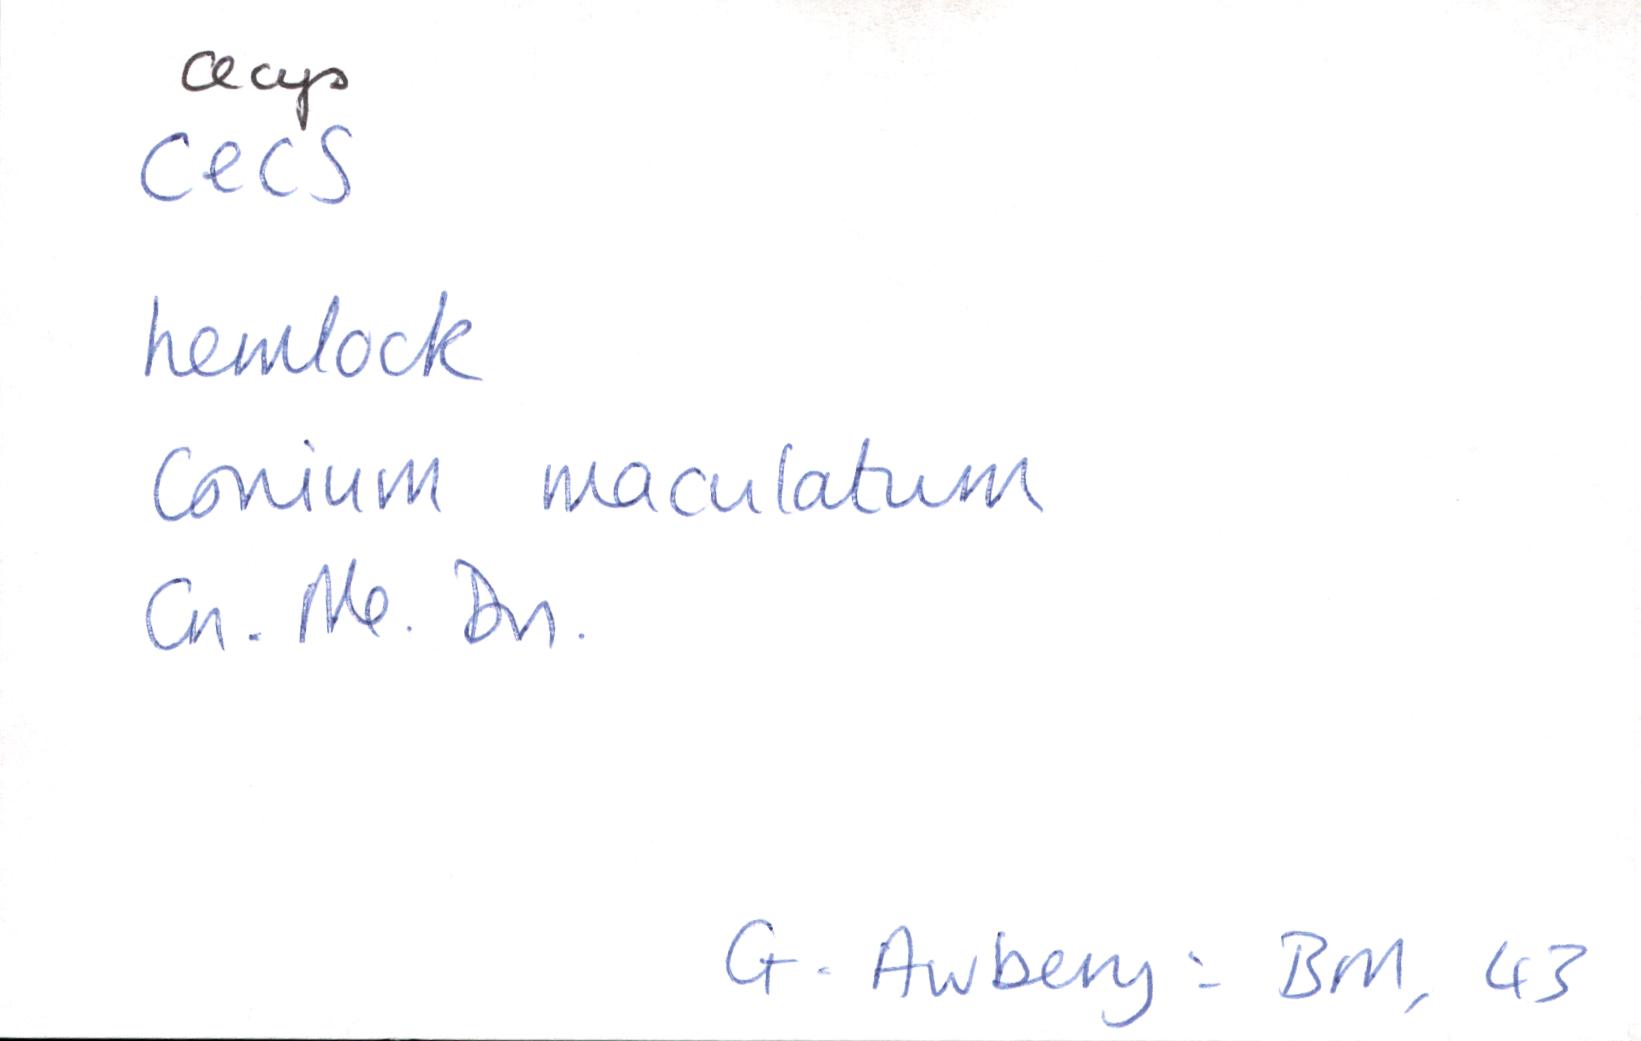 cecys
cecs
hemlock
Conium maculatum
Cn. Me. Dn.
G. Awbery: BM, 43